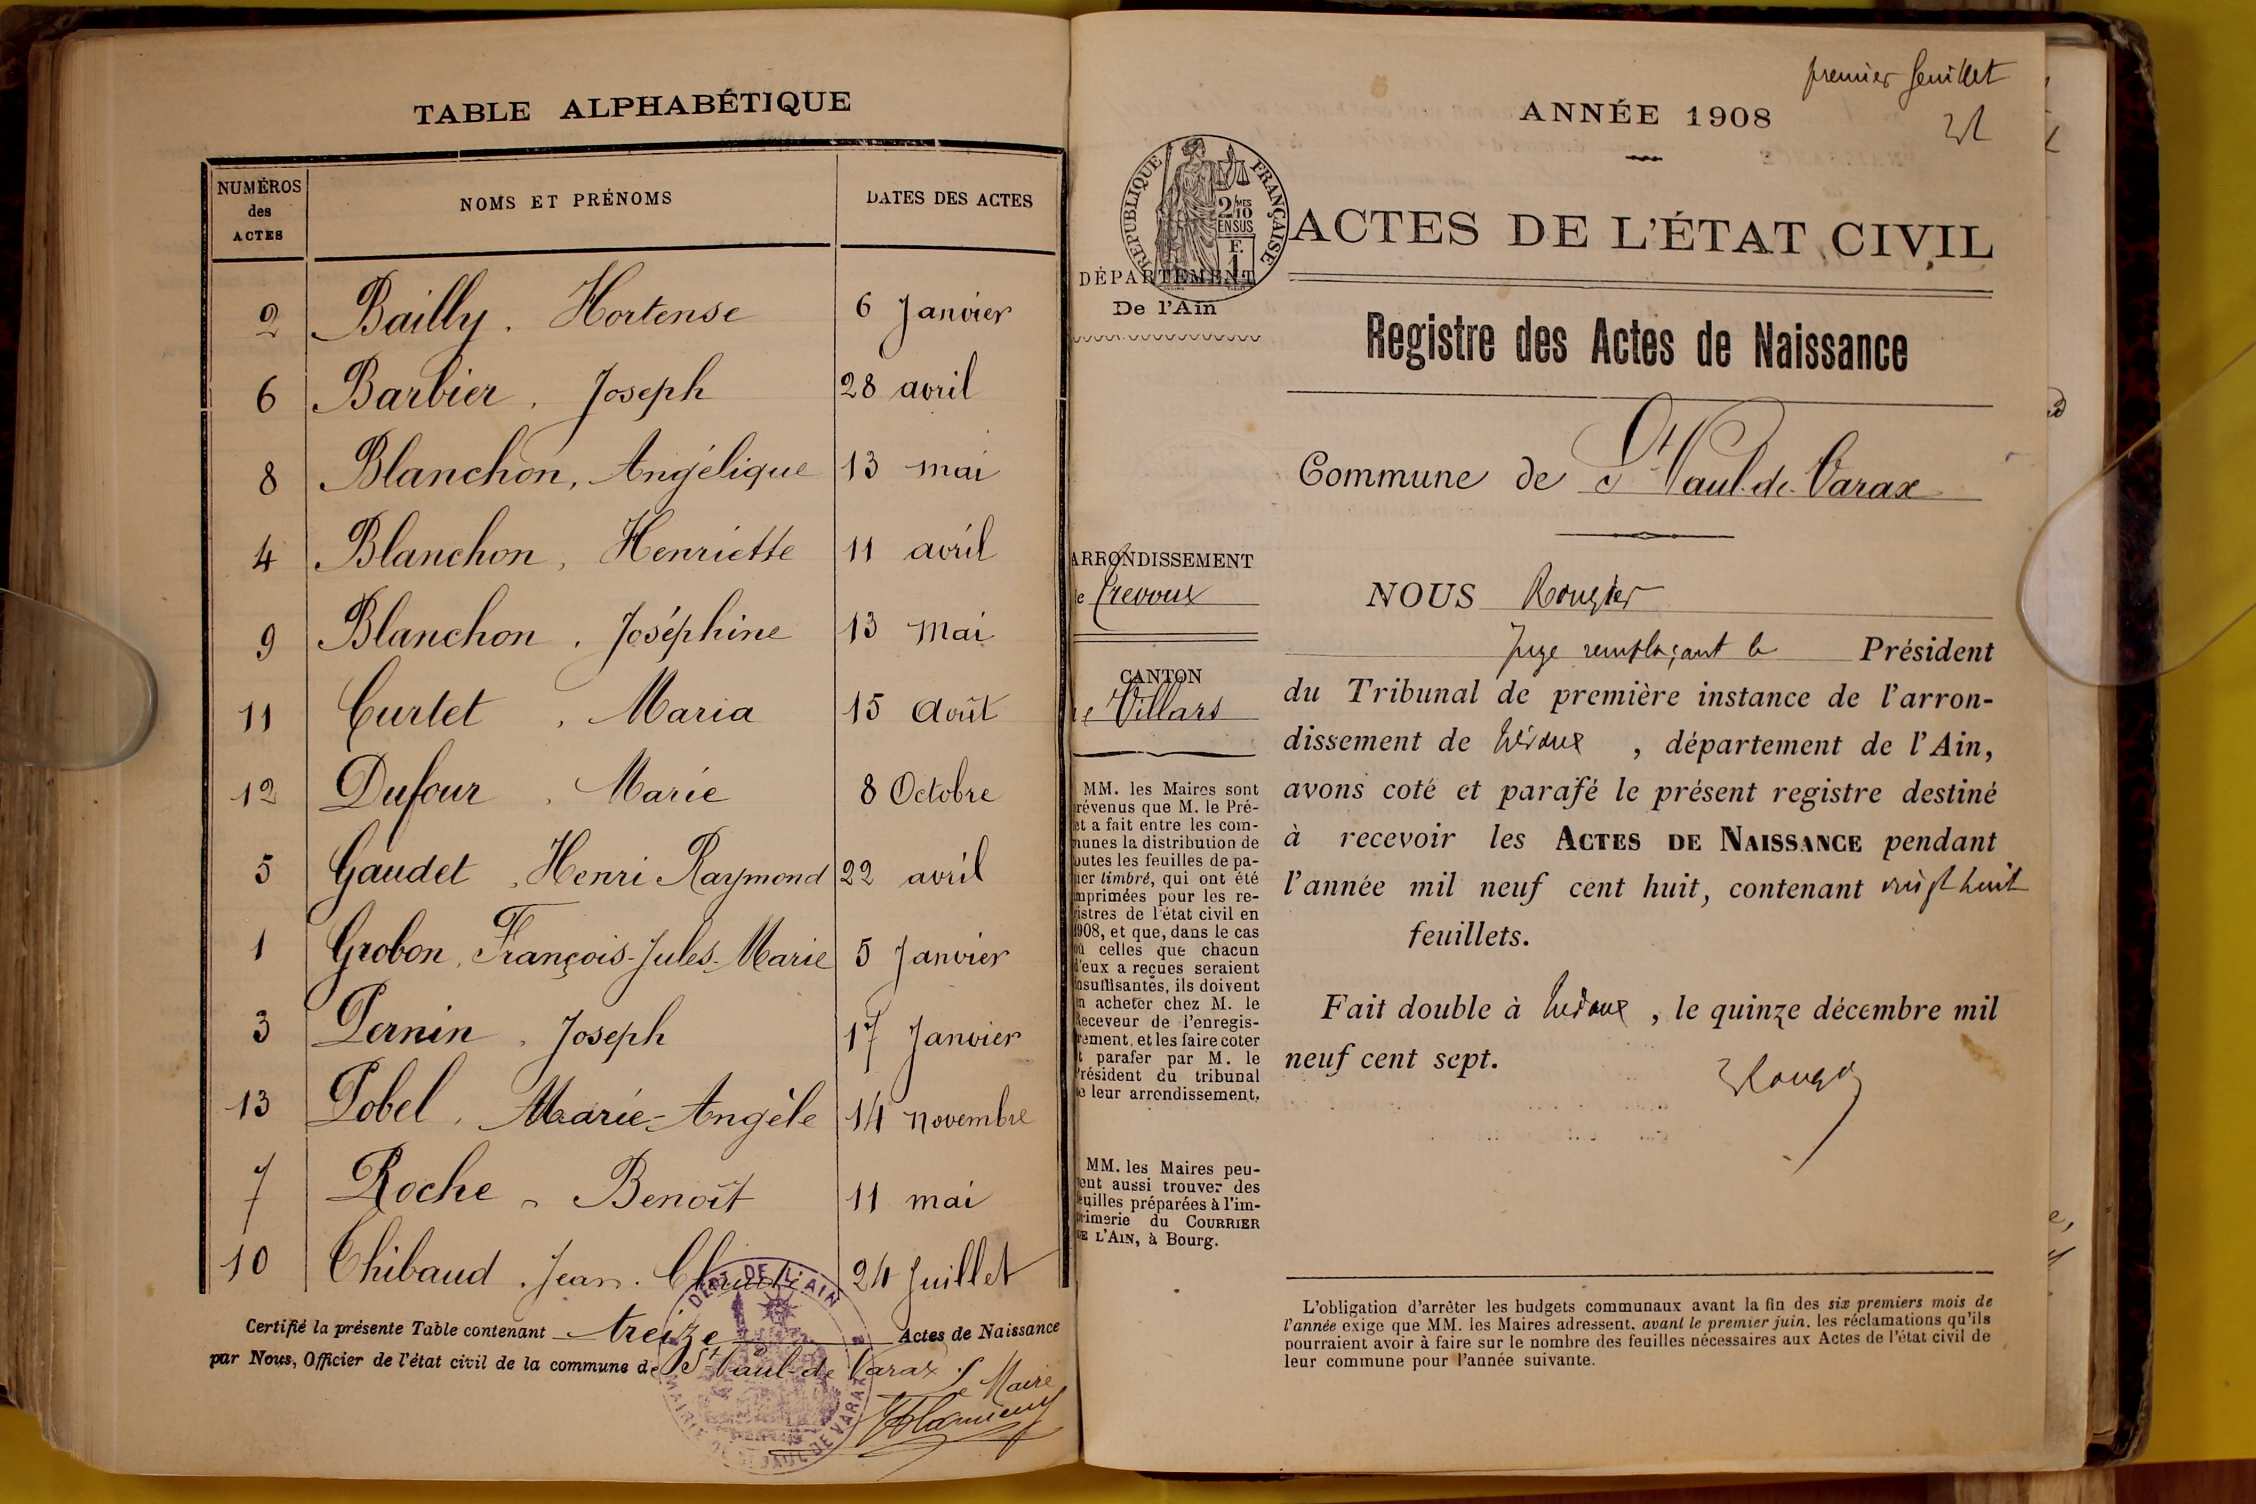 TABLE ALPHABÉTIQUE
NUMÉROS des ACTES NOMS ET PRÉNOMS DATES DES ACTES
2 Bailly, Hortense 6 Janvier
6 Barbier, Joseph 28 avril
8 Blanchon, Angélique 13 mai
4 Blanchon, Henriette 11 avril
9 Blanchon, Joséphine 13 Mai
11 Curtet, Maria 15 Août
12 Dufour, Marie 8 Octobre
5 Gaudet, Henri Raymond 22 avril
1 Grobon, François-Jules-Marie 5 Janvier
3 Pernin, Joseph 17 Janvier
13 Pobel, Marie-Angèle 14 novembre
7 Roche, Benoît 11 mai
10 Thibaud, Jean-Claude 24 Juillet
Certifié la présente Table contenant treize Actes de Naissance
par Nous, Officier de l'état civil de la commune de St Paul-de Varax
Le Maire
DEPT DE L'AIN
MAIRIE DE ST PAUL DE VARAX
premier feuillet
ANNÉE 1908
RÉPUBLIQUE FRANÇAISE
2/10MES
EN SUS
1 F.
ACTES DE L'ÉTAT CIVIL
DÉPARTEMENT
De l'Ain
Registre des Actes de Naissance
Commune de St Paul-de-Varax
ARRONDISSEMENT
de Trevoux
CANTON
de Villars
MM. les Maires sont
prévenus que M. le Pré-
fet a fait entre les com-
munes la distribution de
toutes les feuilles de pa-
pier timbré, qui ont été
imprimées pour les re-
gistres de l'état civil en
1908, et que, dans le cas
où celles que chacun
d'eux a reçues seraient
insuffisantes, ils doivent
en acheter chez M. le
Receveur de l'enregis-
trement, et les faire coter
et parafer par M. le
Président du tribunal
de leur arrondissement.
MM. les Maires peu-
vent aussi trouver des
feuilles préparées à l'im-
primerie du COURRIER
DE L'AIN, à Bourg.
NOUS Rougier
Juge remplaçant le Président
du Tribunal de première instance de l'arron-
dissement de Trévoux, département de l'Ain,
avons coté et parafé le présent registre destiné
à recevoir les ACTES DE NAISSANCE pendant
l'année mil neuf cent huit, contenant vingt huit
feuillets.
Fait double à Trévoux, le quinze décembre mil
neuf cent sept.
Rougier
L'obligation d'arrêter les budgets communaux avant la fin des six premiers mois de
l'année exige que MM. les Maires adressent, avant le premier juin, les réclamations qu'ils
pourraient avoir à faire sur le nombre des feuilles nécessaires aux Actes de l'état civil de
leur commune pour l'année suivante.